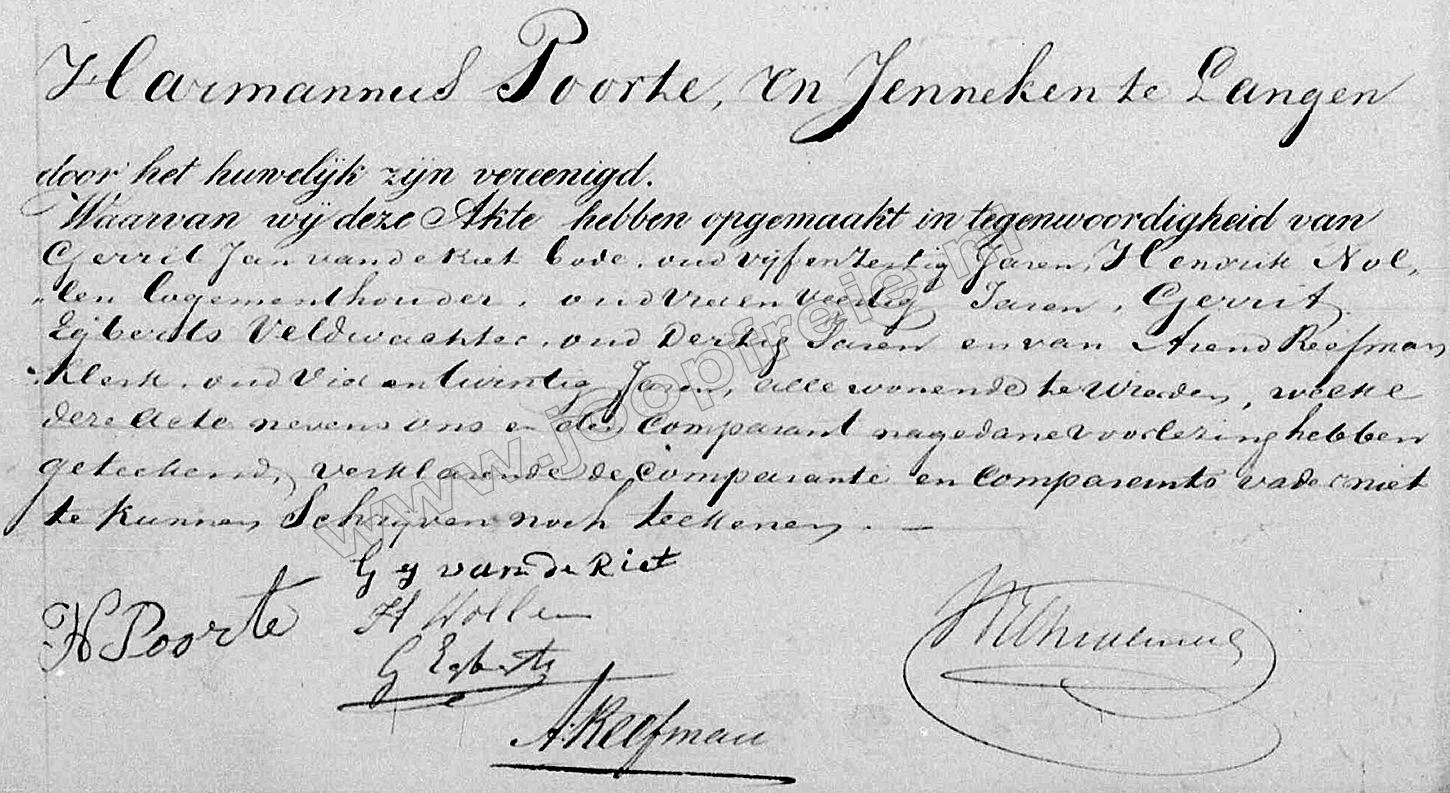 Harmannus Poorte, en Jenneken te Langen
door het huwelijk zijn vereenigd.
Waarvan wij deze Akte hebben opgemaakt in tegenwoordigheid van
Gerrit Jan van de Riet bode, oud vijf en zestig Jaren, Hendrik Nol,
"len logementhouder, oud vier en veertig Jaren, Gerrit
Egberts Veldwachter, oud Dertig Jaren en van Arend Reefman
Klerk, oud Vier en twintig Jaren, alle wonende te Wierden, welke
deze Acte nevens ons en den Comparant na gedane voorlezing hebben
geteekend, verklarende de Comparante en Comparants vader niet
te kunnen Schrijven noch teekenen. —
G J van de Riet
H Poorte
H Nollen
G Egberts
A. Reefman
www.joopfreie.nl